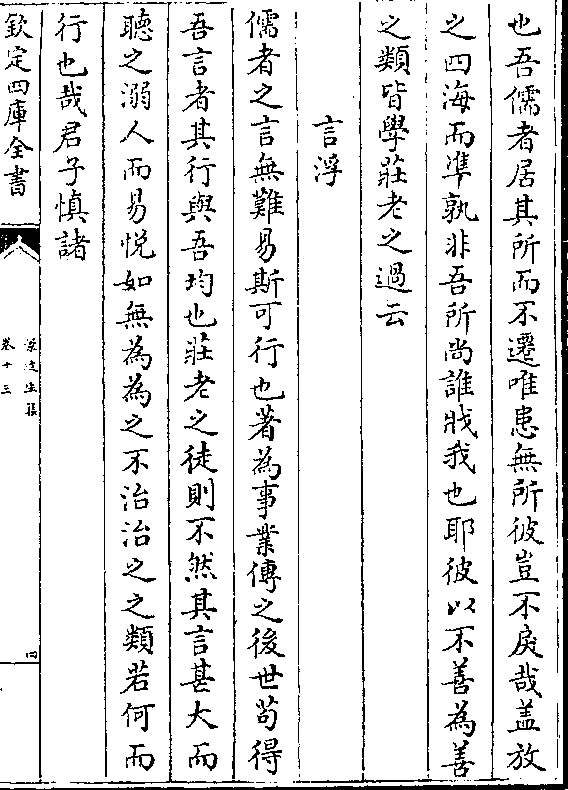 也吾儒者居其所而不遷唯患無所彼豈不戾哉盖放
之四海而凖孰非吾所尚誰戕我也耶彼以不善為善
之類皆學莊老之過云
言浮
儒者之言無難易斯可行也著為事業傳之後世茍得
吾言者其行與吾均也莊老之徒則不然其言甚大而
聽之溺人而易悦如無為為之不治治之之類若何而
行也哉君子慎諸
欽定四庫全書
卷十三
四